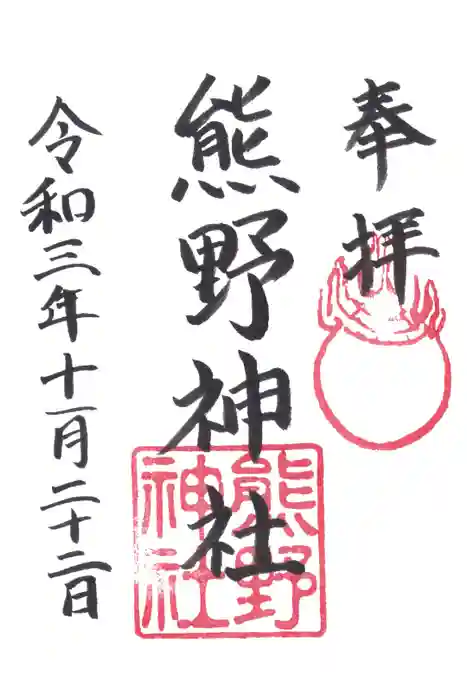 奉拝
熊野神社
熊野
神社
令和三年十一月二十二日